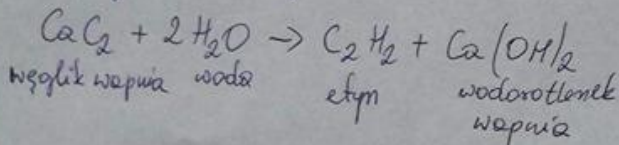 CaC₂ + 2H₂O → C₂H₂ + Ca(OH)₂
węglik wapnia woda etyn wodorotlenek
wapnia